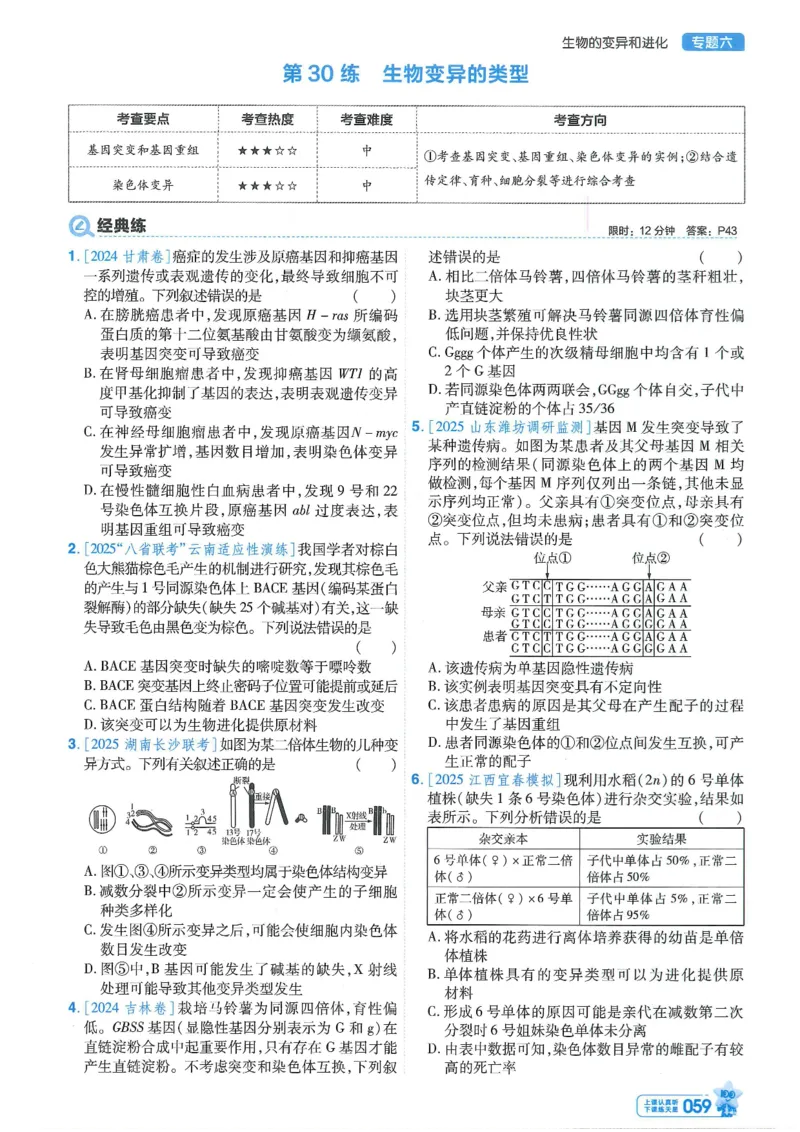 生物的变异和进化 专题六
第 30 练 生物变异的类型
考查要点 考查热度 考查难度 考查方向
基因突变和基因重组 ★★★☆☆ 中
染色体变异 ★★★☆☆ 中
①考查基因突变、基因重组、染色体变异的实例;②结合遗
传定律、育种、细胞分裂等进行综合考查
经典练
限时:12 分钟 答案:P43
1. [2024 甘肃卷]癌症的发生涉及原癌基因和抑癌基因
一系列遗传或表观遗传的变化,最终导致细胞不可
控的增殖。下列叙述错误的是 ( )
A. 在膀胱癌患者中,发现原癌基因 H-ras 所编码
蛋白质的第十二位氨基酸由甘氨酸变为缬氨酸,
表明基因突变可导致癌变
B. 在肾母细胞瘤患者中,发现抑癌基因 WT1 的高
度甲基化抑制了基因的表达,表明表观遗传变异
可导致癌变
C. 在神经母细胞瘤患者中,发现原癌基因N-myc
发生异常扩增,基因数目增加,表明染色体变异
可导致癌变
D. 在慢性髓细胞性白血病患者中,发现 9 号和 22
号染色体互换片段,原癌基因 abl 过度表达,表
明基因重组可导致癌变
2. [2025“八省联考”云南适应性演练]我国学者对棕白
色大熊猫棕色毛产生的机制进行研究,发现其棕色毛
的产生与 1 号同源染色体上 BACE 基因(编码某蛋白
裂解酶)的部分缺失(缺失 25 个碱基对)有关,这一缺
失导致毛色由黑色变为棕色。下列说法错误的是
( )
A. BACE 基因突变时缺失的嘧啶数等于嘌呤数
B. BACE 突变基因上终止密码子位置可能提前或延后
C. BACE 蛋白结构随着 BACE 基因突变发生改变
D. 该突变可以为生物进化提供原材料
3. [2025 湖南长沙联考]如图为某二倍体生物的几种变
异方式。下列有关叙述正确的是 ( )
断裂
重接
13号 17号
染色体 染色体
X射线
处理
B B b B B b
Z W Z W
① ② ③ ④ ⑤
A. 图①、③、④所示变异类型均属于染色体结构变异
B. 减数分裂中②所示变异一定会使产生的子细胞
种类多样化
C. 发生图④所示变异之后,可能会使细胞内染色体
数目发生改变
D. 图⑤中,B 基因可能发生了碱基的缺失,X 射线
处理可能导致其他变异类型发生
4. [2024 吉林卷]栽培马铃薯为同源四倍体,育性偏
低。GBSS 基因(显隐性基因分别表示为 G 和 g)在
直链淀粉合成中起重要作用,只有存在 G 基因才能
产生直链淀粉。不考虑突变和染色体互换,下列叙
述错误的是 ( )
A. 相比二倍体马铃薯,四倍体马铃薯的茎秆粗壮,
块茎更大
B. 选用块茎繁殖可解决马铃薯同源四倍体育性偏
低问题,并保持优良性状
C. Gggg 个体产生的次级精母细胞中均含有 1 个或
2 个 G 基因
D. 若同源染色体两两联会,GGgg 个体自交,子代中
产直链淀粉的个体占 35/36
5. [2025 山东潍坊调研监测]基因 M 发生突变导致了
某种遗传病。如图为某患者及其父母基因 M 相关
序列的检测结果(同源染色体上的两个基因 M 均
做检测,每个基因 M 序列仅列出一条链,其他未显
示序列均正常)。父亲具有①突变位点,母亲具有
②突变位点,但均未患病;患者具有①和②突变位
点。下列说法错误的是 ( )
位点① 位点②
父亲 GTCCTGG……AGGAGAA
GTCTTGG……AGGAGAA
母亲 GTCCTGG……AGGAGAA
GTCCTGG……AGGGGAA
患者 GTCTTGG……AGGAGAA
GTCCTGG……AGGGGAA
A. 该遗传病为单基因隐性遗传病
B. 该实例表明基因突变具有不定向性
C. 该患者患病的原因是其父母在产生配子的过程
中发生了基因重组
D. 患者同源染色体的①和②位点间发生互换,可产
生正常的配子
6. [2025 江西宜春模拟]现利用水稻(2n)的 6 号单体
植株(缺失 1 条 6 号染色体)进行杂交实验,结果如
表所示。下列分析错误的是 ( )
杂交亲本 实验结果
6 号单体(♀)×正常二倍 子代中单体占 50%,正常二
体(♂) 倍体占 50%
正常二倍体(♀)×6 号单 子代中单体占 5%,正常二
体(♂) 倍体占 95%
A. 将水稻的花药进行离体培养获得的幼苗是单倍
体植株
B. 单体植株具有的变异类型可以为进化提供原
材料
C. 形成 6 号单体的原因可能是亲代在减数第二次
分裂时 6 号姐妹染色单体未分离
D. 由表中数据可知,染色体数目异常的雌配子有较
高的死亡率
上课认真听
下课练天星 059